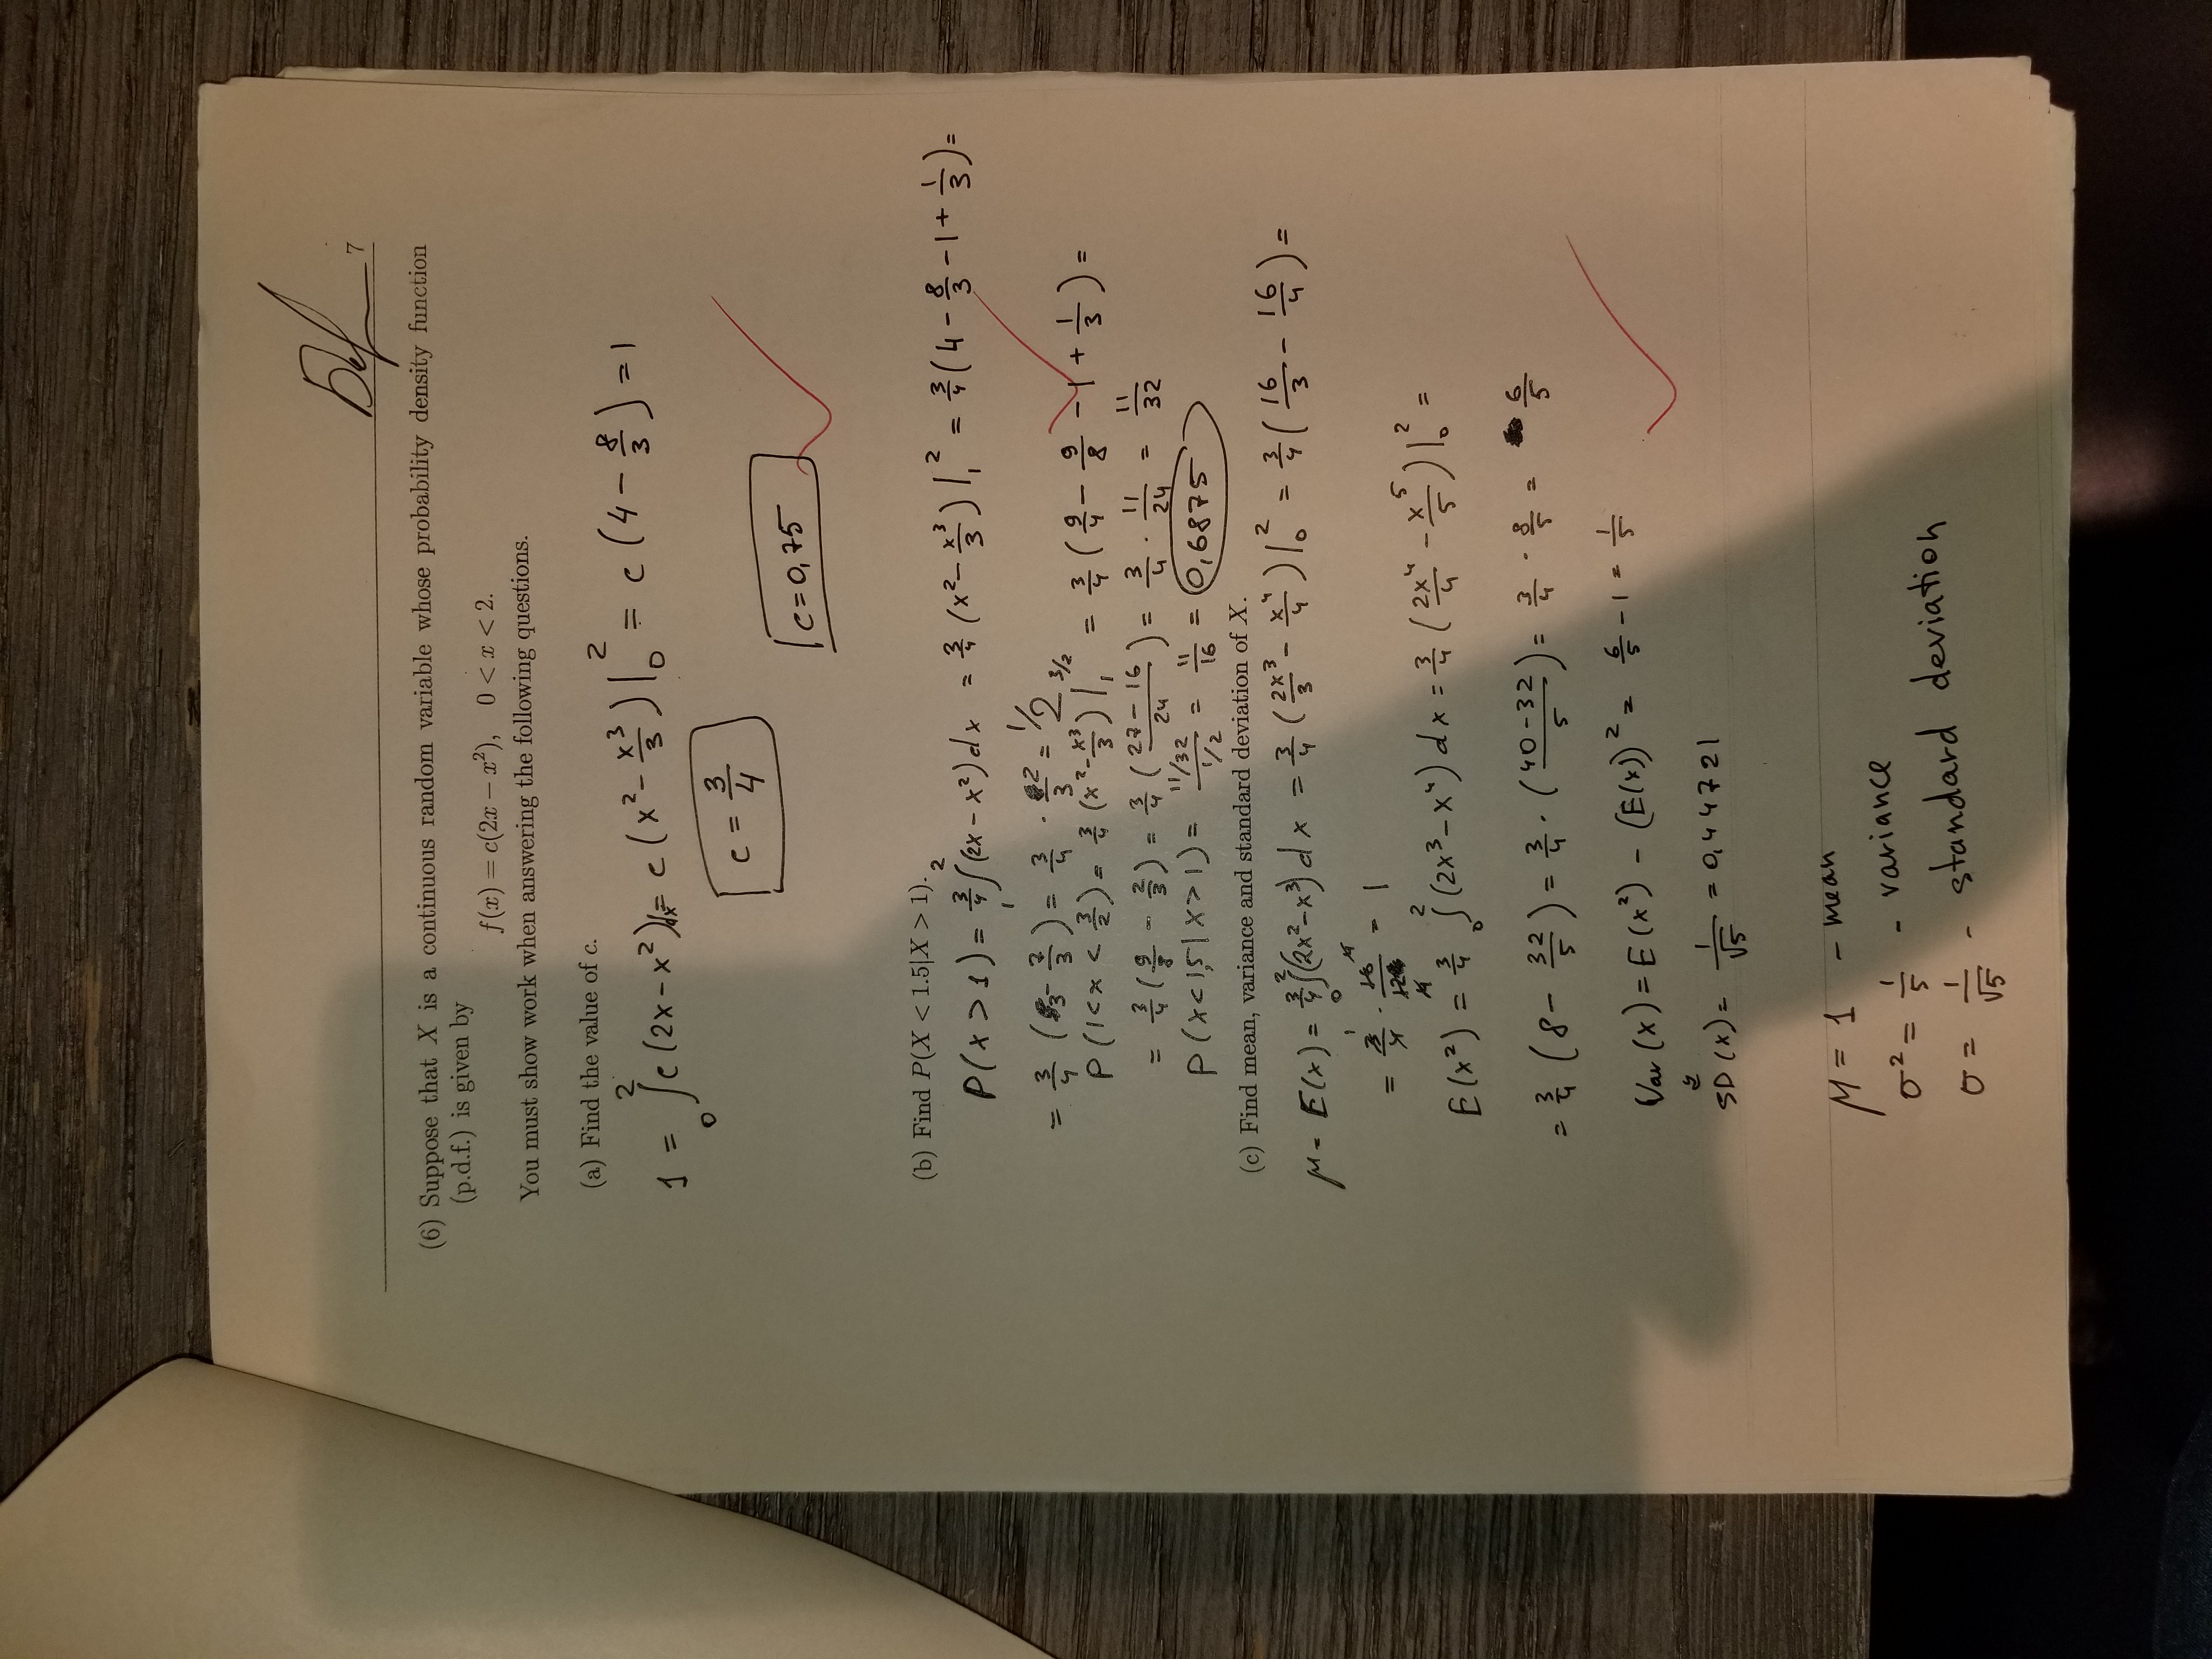 7
(6) Suppose that X is a continuous random variable whose probability density function
(p.d.f.) is given by
f(x) = c(2x − x²), 0 < x < 2.
You must show work when answering the following questions.
(a) Find the value of c.
1 = ∫₀² c(2x − x²)dx = c(x² − x³/3)|₀² = c(4 − 8/3) = 1
c = 3/4
c = 0,75
(b) Find P(X < 1.5|X > 1).
P(x > 1) = 3/4 ∫₁² (2x − x²)dx = 3/4 (x² − x³/3)|₁² = 3/4 (4 − 8/3 − 1 + 1/3) =
= 3/4 (3 − 7/3) = 3/4 · 2/3 = 1/2
P(1 < x < 3/2) = 3/4 (x² − x³/3)|₁^3/2 = 3/4 (9/4 − 9/8 − 1 + 1/3) =
= 3/4 (9/8 − 2/3) = 3/4 (27 − 16 / 24) = 3/4 · 11/24 = 11/32
P(x < 1,5 | x > 1) = 11/32 / 1/2 = 11/16 = 0,6875
(c) Find mean, variance and standard deviation of X.
μ = E(x) = 3/4 ∫₀² (2x² − x³)dx = 3/4 (2x³/3 − x⁴/4)|₀² = 3/4 (16/3 − 16/4) =
= 3/4 · 16/12 = 1
E(x²) = 3/4 ∫₀² (2x³ − x⁴)dx = 3/4 (2x⁴/4 − x⁵/5)|₀² =
= 3/4 (8 − 32/5) = 3/4 · (40 − 32 / 5) = 3/4 · 8/5 = 6/5
Var(x) = E(x²) − (E(x))² = 6/5 − 1 = 1/5
SD(x) = 1/√5 = 0,44721
μ = 1 - mean
σ² = 1/5 - variance
σ = 1/√5 - standard deviation